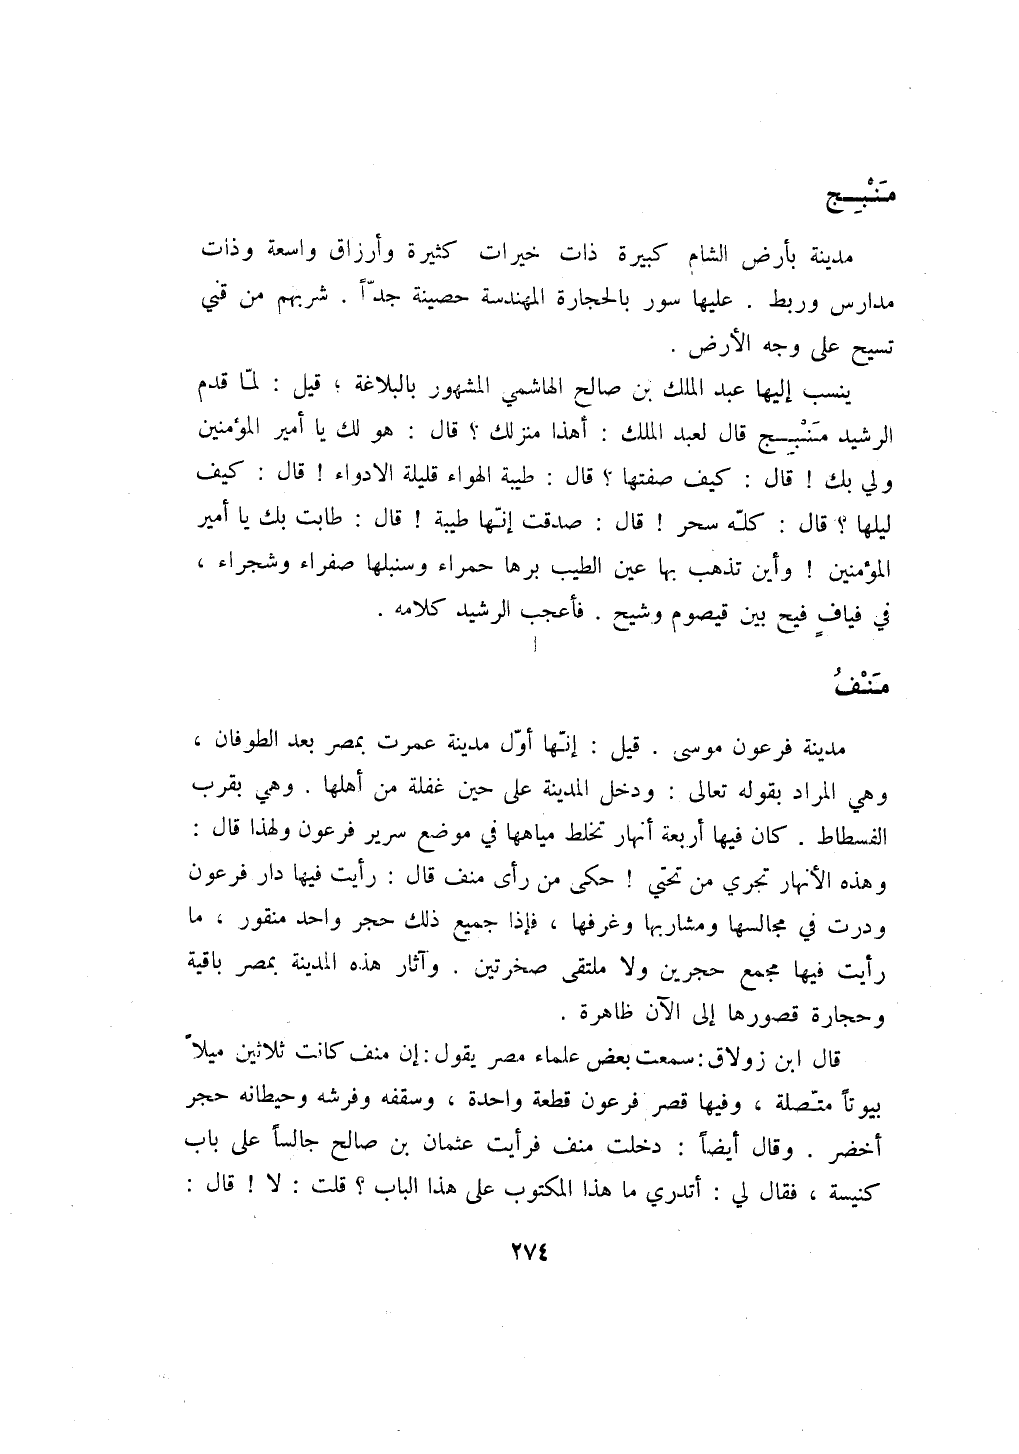 مَنْبِج
مدينة بأرض الشام كبيرة ذات خيرات كثيرة وأرزاق واسعة وذات
مدارس وربط . عليها سور بالحجارة المهندسة حصينة جدّاً . شربهم من قني
تسيح على وجه الأرض .
ينسب إليها عبد الملك بن صالح الهاشمي المشهور بالبلاغة ؛ قيل : لمّا قدم
الرشيد مَنْبِج قال لعبد الملك : أهذا منزلك ؟ قال : هو لك يا أمير المؤمنين
ولي بك ! قال : كيف صفتها ؟ قال : طيبة الهواء قليلة الادواء ! قال : كيف
ليلها ؟ قال : كلّه سحر ! قال : صدقت إنّها طيبة ! قال : طابت بك يا أمير
المؤمنين ! وأين تذهب بها عين الطيب برها حمراء وسنبلها صفراء وشجراء ،
في فيافٍ فيح بين قيصوم وشيح . فأعجب الرشيد كلامه .
مَنْفُ
مدينة فرعون موسى . قيل : إنّها أوّل مدينة عمرت بمصر بعد الطوفان ،
وهي المراد بقوله تعالى : ودخل المدينة على حين غفلة من أهلها . وهي بقرب
الفسطاط . كان فيها أربعة أنهار تخلط مياهها في موضع سرير فرعون ولهذا قال :
وهذه الأنهار تجري من تحتي ! حكى من رأى منف قال : رأيت فيها دار فرعون
ودرت في مجالسها ومشاربها وغرفها ، فإذا جميع ذلك حجر واحد منقور ، ما
رأيت فيها مجمع حجرين ولا ملتقى صخرتين . وآثار هذه المدينة بمصر باقية
وحجارة قصورها إلى الآن ظاهرة .
قال ابن زولاق : سمعت بعض علماء مصر يقول : إن منف كانت ثلاثين ميلاً
بيوتاً متّصلة ، وفيها قصر فرعون قطعة واحدة ، وسقفه وفرشه وحيطانه حجر
أخضر . وقال أيضاً : دخلت منف فرأيت عثمان بن صالح جالساً على باب
كنيسة ، فقال لي : أتدري ما هذا المكتوب على هذا الباب ؟ قلت : لا ! قال :
٢٧٤